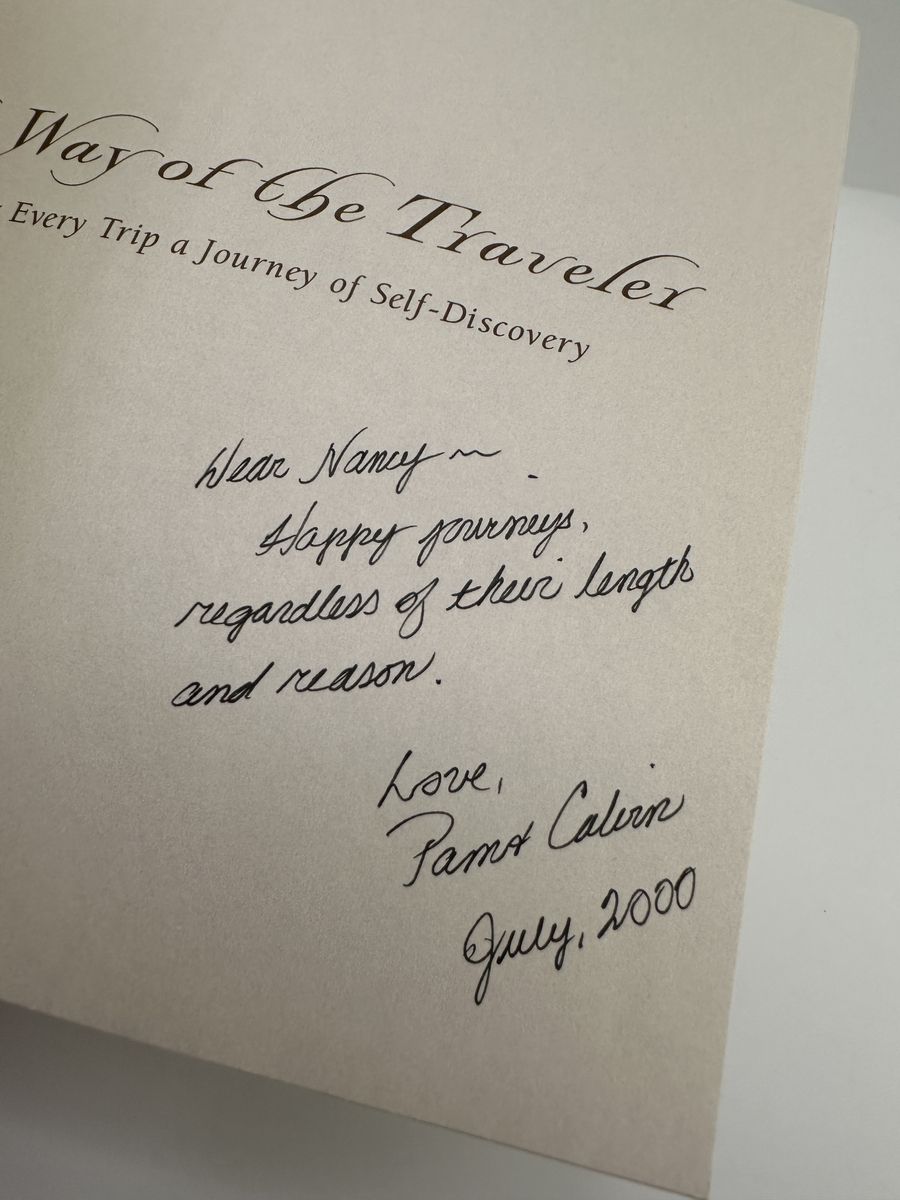 Way of the Traveler
Every Trip a Journey of Self-Discovery
Dear Nancy ~
Happy journeys,
regardless of their length
and reason.
Love,
Pam & Calvin
July, 2000